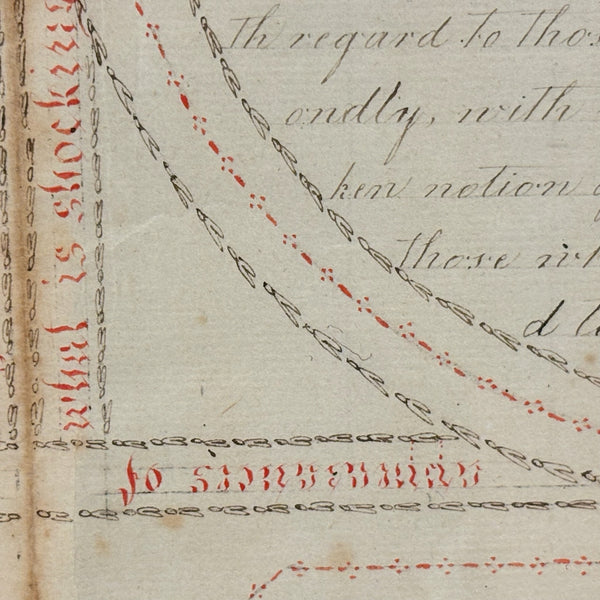 what is shockin
th regard to thos
ondly, with
ken notion
those wh
d
of